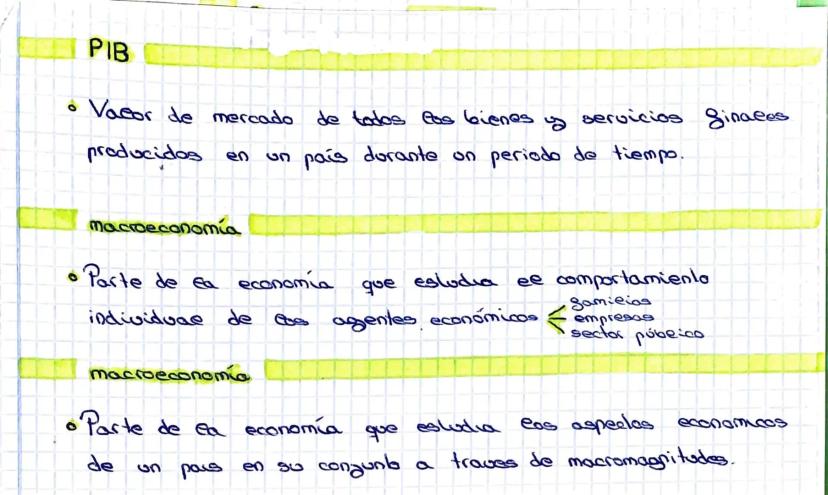 PIB
Valor de mercado de todos los bienes y servicios finales
producidos en un país durante un periodo de tiempo.
macroeconomía
Parte de la economía que estudia el comportamiento
individual de los agentes económicos
familias
empresas
sector público
macroeconomía
Parte de la economía que estudia los aspectos economicos
de un pais en su conjunto a traves de macromagnitudes.